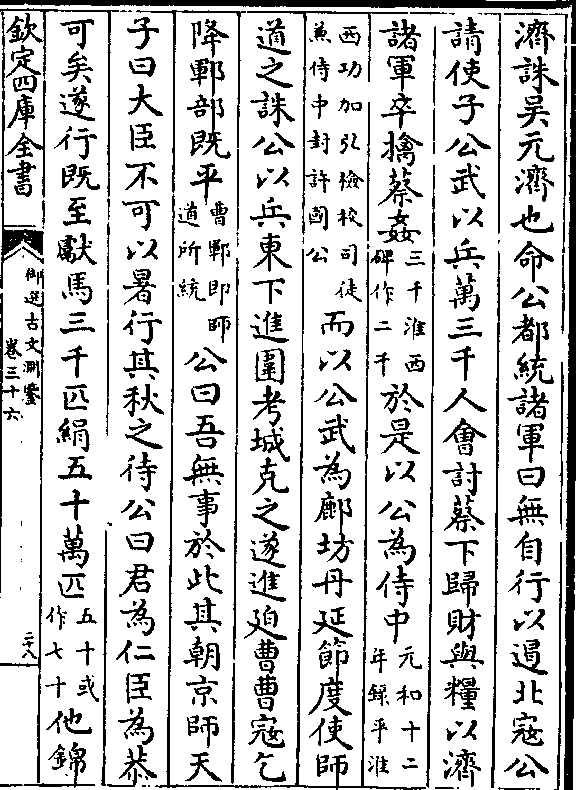 濟誅吳元濟也命公都統諸軍曰無自行以遏北寇公
請使子公武以兵萬三千人會討蔡下歸財與糧以濟
諸軍卒擒蔡姦三千淮西碑作二千於是以公為侍中元和十二年錄平淮
西功加弘檢校司徒兼侍中封許國公而以公武為鄜坊丹延節度使師
道之誅公以兵東下進圍考城克之遂進廹曹曹寇乞
降鄆部既平曹鄆即師道所統公曰吾無事於此其朝京師天
子曰大臣不可以暑行其秋之待公曰君為仁臣為恭
可矣遂行既至獻馬三千匹絹五十萬匹五十或作七十他錦
欽定四庫全書
御選古文淵鑒
卷三十六
二八